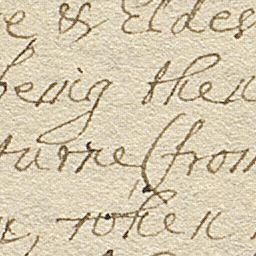 e & Eldes
being then
turne (from
, when